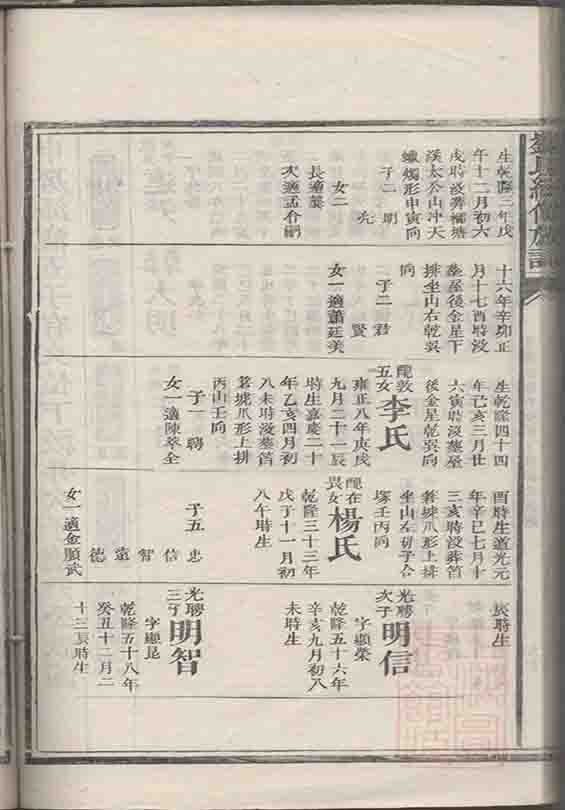 生乾隆三年戊
午十二月初六
戌時歿葬楊塘
漢太公山冲天
蠟燭形申寅向
子二 明
光
女二
長適龔
次適孟台嗣
十六年辛卯正
月十七酉時歿
葬屋後金星下
排坐山右乾巽
向
子二 君
賢
女一適蕭廷美
生乾隆四十四
年己亥三月廿
六寅時歿葬屋
後金星乾巽向
配敦五女李氏
雍正八年庚戌
九月二十一辰
時生嘉慶二十
年乙亥四月初
八未時歿葬筲
箕坡爪形上排
丙山壬向
子一 聘
女一適陳萃全
酉時生道光元
年辛巳七月十
三亥時歿葬筲
箕坡爪形上排
坐山左研子合
塚壬丙向
配在畏女楊氏
乾隆三十三年
戊子十一月初
八午時生
子五 忠
信
智
遠
德
女一適金順武
辰時生
光聘次子明信
字顯榮
乾隆五十六年
辛亥九月初八
未時生
光聘三子明智
字顯昆
乾隆五十八年
癸丑十二月二
十三辰時生